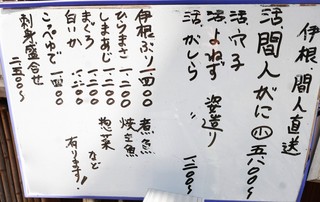 伊根・間人直送
活・間人がに ㊙小 五八〇〇〜
活・穴子
活・よねず 姿造り
活・がしら 一二〇〇〜
伊根ぶり 一四〇〇
ひらまさ 一二〇〇
しまあじ 一二〇〇
まぐろ 一二〇〇
白いか 一二〇〇
こっぺゆで 一四〇〇
刺身盛合せ
二五〇〇〜
煮魚
焼魚
惣菜
など
有ります!!